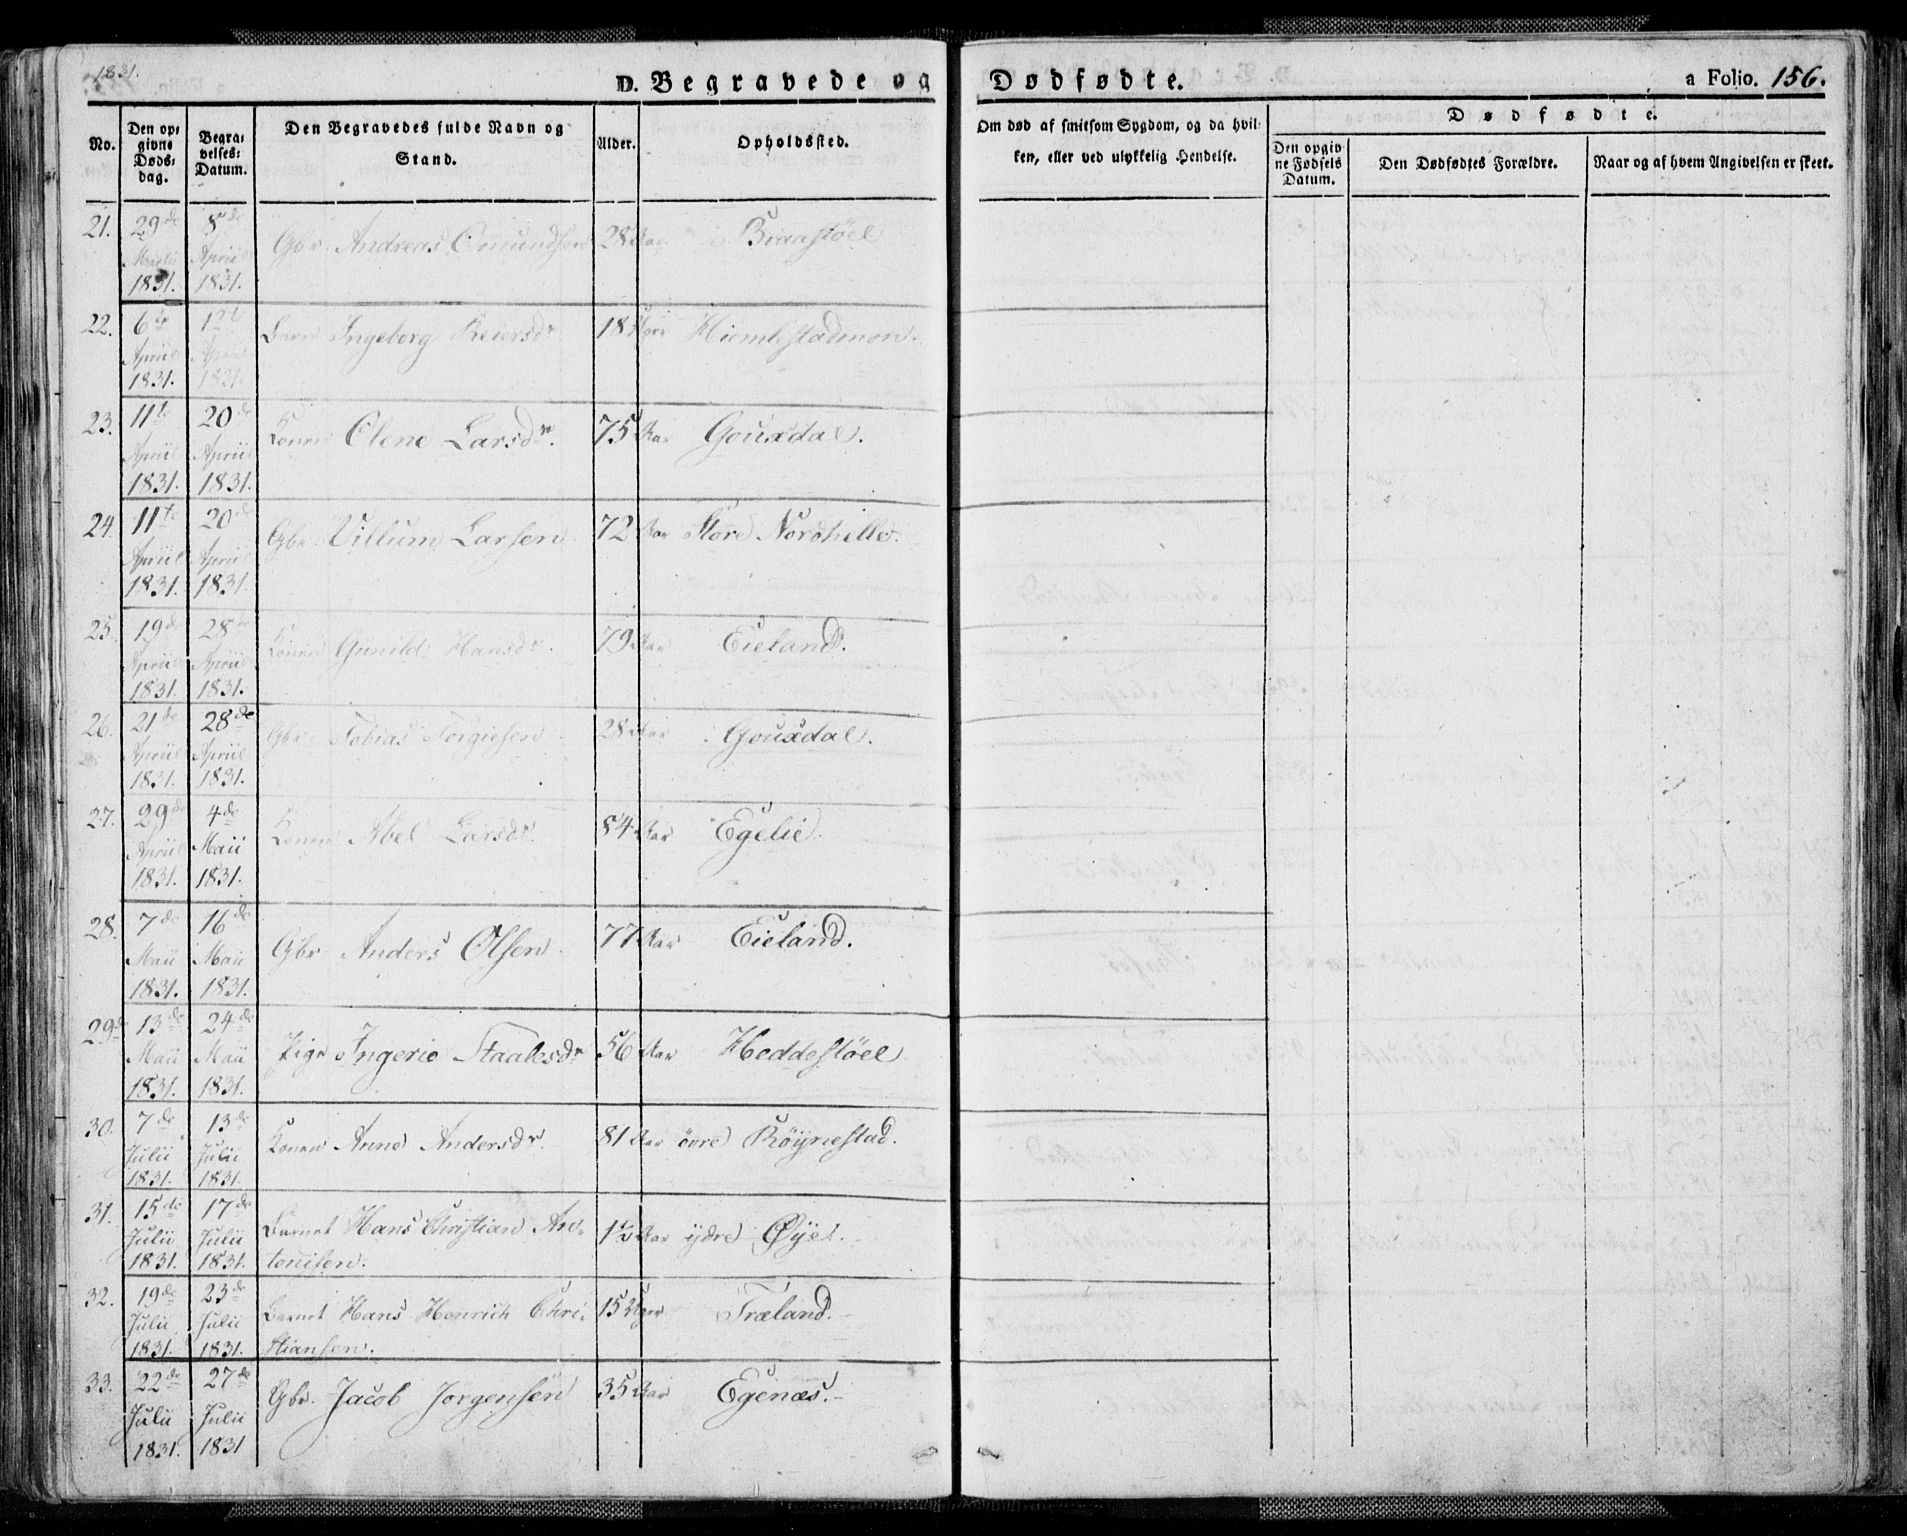 1831.
D. Begravede og Dødfødte. a Folio. 156.
No. Den opgivne Dødsdag. Begravelses-Datum. Den Begravedes fulde Navn og Stand. Alder. Opholdssted. Om død af smitsom Sygdom, og da hvilken, eller ved ulykkelig Hendelse. Dødfødte.
Den opgivne Fødsels Datum. Den Dødfødtes Forældre. Naar og af hvem Angivelsen er skeet.
21. 29de Martii 1831. 8de April 1831. Gbr. Andreas Omundsen 28 Aar Braastøel
22. 6te April 1831. 12te April 1831. Barn Ingeborg Reiersdr 18 Hiemlestadmon.
23. 11te April 1831. 20de April 1831. Konen Olene Larsdr. 75 Aar Gouxdal.
24. 11te April 1831. 20de April 1831. Gbr. Villum Larsen 72 Aar Store Nordhelle.
25. 19de April 1831. 28de April 1831. Konen Gunild Hansdr. 79 Aar Eieland.
26. 21de April 1831. 28de April 1831. Gbr. Tobias Torgiesen 28 Aar Gouxdal.
27. 29de April 1831. 4de Maii 1831. Konen Abel Larsdr. 84 Aar Egelie.
28. 7de Maii 1831. 16de Maii 1831. Gbr Anders Olsen. 77 Aar Eieland.
29de 13de Maii 1831. 24de Maii 1831. Pige Ingerie Staalesdr 56 Aar Heddestøel
30. 7de Julii 1831. 13de Julii 1831. Konen Anne Andersdr. 81 Aar övre Röijnestad.
31. 15de Julii 1831. 17de Julii 1831. Barnet Hans Christian An-
tonisen. 1½ Aar ijdre Øijet.
32. 19de Julii 1831. 23de Julii 1831. Barnet Hans Henrich Chri-
stiansen. 15 Uger Træland.
33. 22de Julii 1831. 27de Julii 1831 Gbr. Jacob Jörgensen 35 Aar Egenæs.